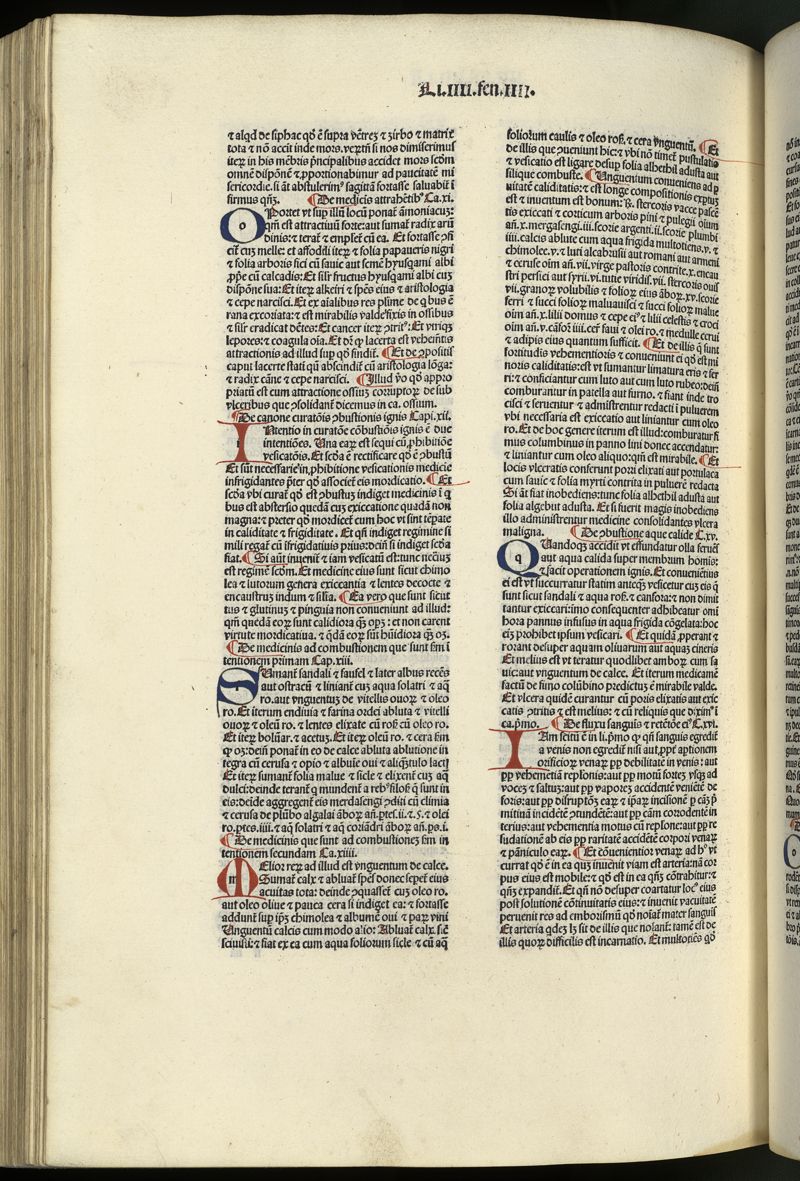 Li.IIII.fen.IIII.
⁊ alqd de siphac qđ ē supra vētreȝ ⁊ zirbo ⁊ matrix
tota ⁊ nō accit inde mors. veꝝtñ si nos dimiserimus
iteꝝ in his mēbris pͥncipalibus accidet mors scđm
omnē dispōnē ⁊ ꝓportionabinur ad paucitatē mi
sericordie. si āt abstulerimꝰ sagittā fortasse saluabit̄ ī
firmus qñȝ. ¶ De medicis attrahētibꝰ Ca.xi.
oPortet vt sup illū locū ponat̄ āmoniacuȝ:
qm̄ est attractiuū forte: aut sumat̄ radix arū
dinis: ⁊ terat̄ ⁊ emplet̄ cū ea. Et fortasse ꝯfi
cit̄ cuȝ melle: et affodili iteꝝ ⁊ folia papaueris nigri
⁊ folia arboris fici cū sauic aut semē hyusqami albi
ꝓpͥe cū calcadis: Et silr̄ fructus hyusqami albi cuȝ
dispōne sua: Et iteꝝ alkeiri ⁊ spēs eius ⁊ aristologia
⁊ cepe narcisci. Et ex aīalibus res plīme de qͥbus ē
rana excoriata: ⁊ est mirabilis valde: fixis in ossibus
⁊ silr̄ eradicat dētes: Et cancer iteꝝ ꝯtritꝰ: Et vtriqȝ
lepores: ⁊ coagula oīa. Et dr̄ ꝙ lacerta est vehemētis
attractionis ad illud sup qđ findit̄. ¶ Et de ꝯpositis
caput lacerte stati qū abscindit̄ cū aristologia lōga:
⁊ radix cāne ⁊ cepe narcisci. ¶ Illud v̄o qđ appro
priatū est cum attractione ossiuȝ corruptoꝝ de sub
vlceribus que ꝯsolidant̄ dicemus in ca. ossium.
¶ De canone curatōis ꝯbustionis ignis Capi.xii.
INtentio in curatōe cōbustiōis ignis ē due
intentiōes. Una eaꝝ est sequi cū ꝓhibitiōe
vesicatōis. Et scđa ē rectificare qđ ē ꝯbustū
Et sūt necessarie in ꝓhibitione vesicationis medicīe
infrigidantes pͥter qđ associet̄ eis mordicatio. ¶ Et
scđa vbi curat̄ qđ est ꝯbustuȝ indiget medicinis ī q̄
bus est abstersio quedā cuȝ exiccatione quadā non
magna: ⁊ preter qđ mordicet̄ cum hoc vt sint tēpate
in caliditate ⁊ frigiditate. Et qn̄ indiget regimine si
mili regat̄ cū īfrigidatiuis prius: deīn si indiget scđa
fiat. ¶ Si aūt inuenit̄ ⁊ iam vesicatū est: tunc necc̄uȝ
est regimē scđm. Et medicine eius sunt sicut chimo
lea ⁊ lutorum genera exiccantia ⁊ lentes decocte ⁊
encaustruȝ indum ⁊ silia. ¶ Ea vero que sunt sicut
tus ⁊ glutinuȝ ⁊ pinguia non conueniunt ad illud:
qm̄ quedā eoꝝ sunt calidiora qȝ opȝ: et non carent
virtute mordicatiua. ⁊ q̄dā eoꝝ sūt hūidiora qȝ oȝ.
¶ De medicinis ad combustionem que sunt fm̄ ī
tentionem primam Cap.xiii.
SUmant̄ sandali ⁊ faufel ⁊ later albus recēs
aut ostracū ⁊ liniant̄ cuȝ aqua solatri ⁊ aq̄
ro. aut vnguentuȝ de vitellis ouoꝝ ⁊ oleo
ro. Et iterum endiuia ⁊ farina ordei abluta ⁊ vitelli
ouoꝝ ⁊ oleū ro. ⁊ lentes elixate cū roſ. cū oleo ro.
Et iteꝝ bolū ar. ⁊ acetuȝ. Et iteꝝ oleū ro. ⁊ cera fm̄
ꝙ oȝ: deīn ponat̄ in eo de calce abluta ablutione in
tegra cū cerusa ⁊ opio ⁊ albuīe oui ⁊ aliqͣntulo lact̄
Et iteꝝ sumant̄ folia malue ⁊ sicle ⁊ elixent̄ cuȝ aq̄
dulci: deinde terant̄ ꝙ mundent̄ a rebꝰ filoſ. q̄ sunt in
eis: deīde aggregent̄ eis merdasengi ꝯditi cū climia
⁊ cerusa de plūbo algalai āboꝝ añ. ptes. ii. ⁊. s. ⁊ olei
ro. ptes. iiii. ⁊ aq̄ solatri ⁊ aq̄ coriādri āboꝝ añ. ps. i.
¶ De medicinis que sunt ad combustioneȝ fm̄ in
tentionem secundam Ca.xiiii.
mELior reꝝ ad illud est vnguentum de calce.
Sumat̄ calx ⁊ abluat̄ spēs donec sepet̄ eius
acuitas tota: deinde ꝯquasset̄ cuȝ oleo ro.
aut oleo oliue ⁊ pauca cera si indiget ea: ⁊ fortasse
addunt̄ sup ipȝ chimolea ⁊ albumē oui ⁊ paꝝ vini
Unguentū calcis cum modo aīo: Abluat̄ calx. s̄iē
sciuisti: ⁊ fiat ex ea cum aqua foliorum sicle ⁊ cū aq̄
foliorum caulis ⁊ oleo roſ. ⁊ cera vnguentū. ¶ Et
de illis que ꝯueniunt hic: ⁊ vbi nō timet̄ pustulatio
⁊ vesicatio est ligare desup folia alhethil adusta aut
silique combuste. ¶ Unguentum conueniens ad ꝓ
uitatē caliditatis: ⁊ est longe compositionis exptuȝ
est ⁊ inuentum est bonum: ℞. stercoris vacce pascē
tis exiccati ⁊ corticum arboris pini ⁊ pulegii oium
añ. x. mergasengi. iii. scorie argenti. ii. scorie plumbi
iiii. calcis ablute cum aqua frigida multotiens. v. ⁊
chimolee. v. ⁊ luti alcabrusii aut romani aut armeni
⁊ ceruse oim añ. vii. virge pastoris contrite. x. encau
stri persici aut syrii. vi. tutie viridis. vii. stercoris ouis
vii. granoꝝ volubilis ⁊ folioꝝ eius āboꝝ. xv. scorie
ferri ⁊ succi folioꝝ maluauisci ⁊ succi folioꝝ malue
oim añ. x. lilii domus ⁊ cepe eiꝰ ⁊ lilii celestis ⁊ croci
oim añ. v. cāfoꝝ iiii. cer̄ faui ⁊ olei ro. ⁊ medulle cerui
⁊ adipis eius quantum sufficit. ¶ Et de illis q̄ sunt
fortitudis vehementioris ⁊ conueniunt ei qđ est mi
noris caliditatis: est vt sumantur limatura eris ⁊ fer
ri: ⁊ conficiantur cum luto aut cum luto rubeo: deīn
comburantur in patella aut furno. ⁊ fiant inde tro
cisci ⁊ seruentur ⁊ admistrentur redacti ī puluerem
vbi necessaria est exiccatio aut liniantur cum oleo
ro. Et de hoc genere iterum est illud: comburatur fi
mus columbinus in panno lini donec accendatur:
⁊ liniantur cum oleo aliquo: qm̄ est mirabile. ¶ Et
locis vlceratis conferunt porri elixati aut portulaca
cum sauic ⁊ folia myrti contrita in puluerē redacta
Si āt fiat inobediens: tunc folia alhethil adusta aut
folia algebut adusta. Et si fuerit magis inobediens
illo administrentur medicine consolidantes vlcera
maligna. ¶ De ꝯbustione aque calide C.xv.
qUandoqȝ accidit vt effundatur olla feruēs
aut aqua calida super membrum homis:
⁊ facit operationem ignis. Et conueniētius
ei est vt succurratur statim anteqȝ vesicetur cuȝ eis q̄
sunt sicut sandali ⁊ aqua roſ. ⁊ canfora: ⁊ non dimit
tantur exiccari: imo consequenter adhibeatur omī
hora pannus infusus in aqua frigida cōgelata: hoc
eīȝ prohibet ipsum vesicari. ¶ Et quidā ꝓperant ⁊
rorant desuper aquam oliuarum aut aquaȝ cineris
Et melius est vt teratur quodlibet amboꝝ cum sa
uic: aut vnguentum de calce. Et iterum medicamē
factū de fimo colūbino predictuȝ ē mirabile valde.
Et vlcera quidē curantur cū poris elixatis aut exic
catis ꝯtritis ⁊ est melius: ⁊ cū reliquis que diximꝰ ī
ca. pͥmo. ¶ De fluxu sanguis ⁊ retētōe eiꝰ C.xvi.
IAm scitū ē in li. pͥmo ꝙ qn̄ sanguis egredit̄
a venis non egredit̄ nisi aut ꝓpt̄ aptionem
orificioꝝ venaꝝ pp debilitate in venis: aut
pp vehemētia replōnis: aut pp motū fortē vsqȝ ad
voceȝ ⁊ saltuȝ: aut pp vapores accidentē veniētē de
foris: aut pp disruptōȝ eaꝝ ⁊ ipaꝝ incisionē p cāȝ pͥ
mitiuā incidētē ꝯtundētē: aut pp cām corrodentē in
terius: aut vehementia motus cū replōne: aut pp re
sudationē ab eis pp raritatē accidētē corpori venaꝝ
⁊ pāniculo eaꝝ. ¶ Et cōuenientior venaꝝ ad hͦ vt
currat qđ ē in ea quȝ inuēnit viam est arteria: nā cor
pus eius est mobile: ⁊ qđ est in ea qn̄ȝ cōtrahitur: ⁊
qn̄ȝ expandit̄. Et qn̄ nō desuper coartatur locꝰ eius
post solutionē cōtinuitatis eius: ⁊ inuenit vacuitatē
peruenit res ad emborismū qđ noīat̄ mater sanguīs
Et arteria qđeȝ lȝ sit de illis que nolant̄: tamē est de
illis quoꝝ difficilis est incarnatio. Et multotiēs qđ